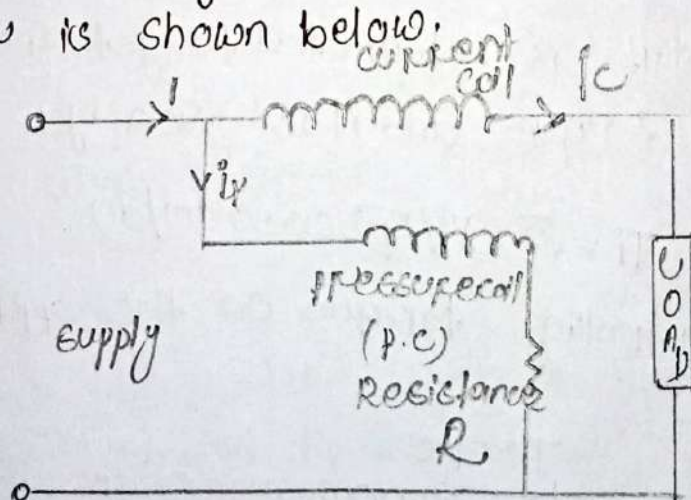 is shown below.
current
coil
I
Ic
ip
pressurecoil
(P.C)
Resistance
R
supply
LOAD